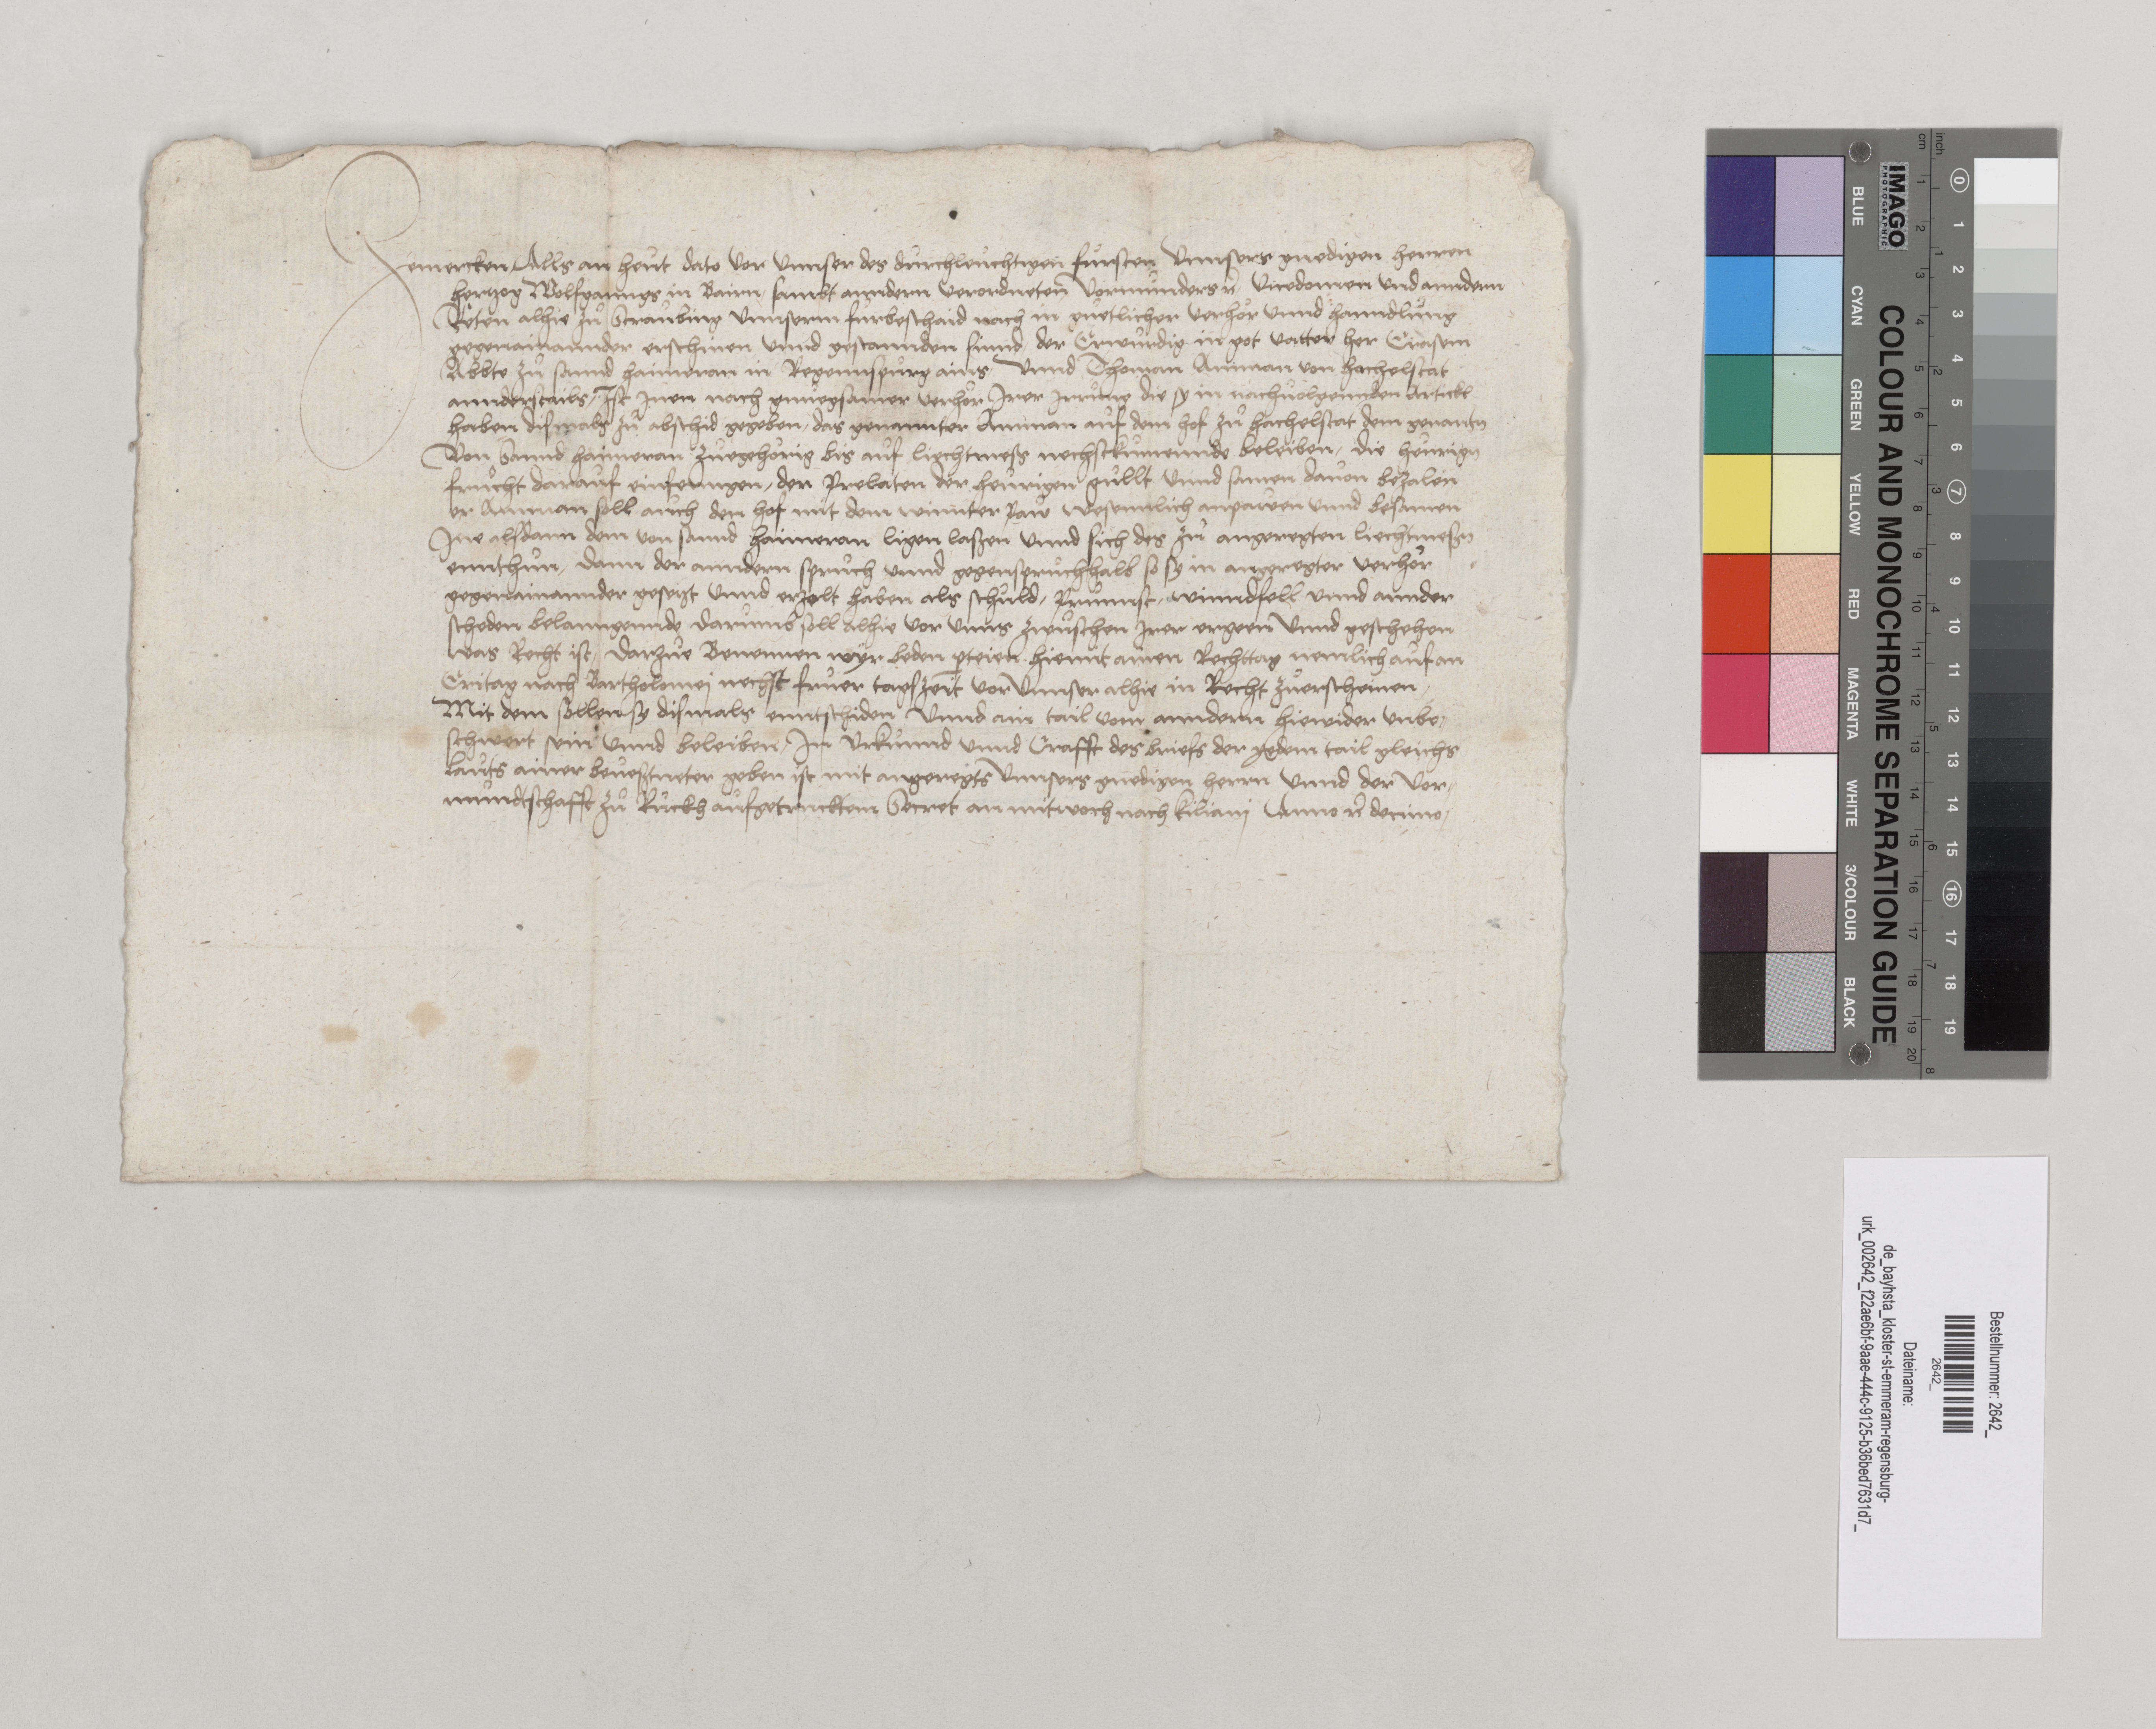 Zemercken Alls an heut dato vor unnser des durchleuchtigen fursten unnsers gnedigen herren
hertzog Wolfganngs in Bairn sambt anndern verordneten vormunders rc vicedomen und anndern
Reten alhie zu Straubing unnserm furbeschaid nach in guetlicher verhör unnd hanndlung
gegenainannder erschinen unnd gestannden sinnd der Erwurdig in got vatter her Erasem
Abbte zu sannd haimeran in Regennspurg ains unnd Thoman Amman von hachelstat
annderstails, Ist Inen nach gnuegsamer verhör Irer Irrung die sy in nachvolgennden Artickl
haben dismals zu abschid gegeben, das genannter Amman auf dem hof zu hachelstat dem genantn
von Sannd haimeran zuegehörig bis auf liechtmess nechstkumennde beleiben, die heurign
frucht darauf einfenngen, den Prelaten der heurigen gullt unnd samen davon bezalen
er Amman soll auch den hof mit dem winnter paw wesennlich anpawen unnd besamen
Ine alsdann dem von sannd haimeran ligen lassen unnd sich des zu angeregten liechtmessn
ennthun, dann der anndern spruch unnd gegenspruchhalb so sy in angeregter verhör
gegenainannder gesetzt unnd erzelt haben als schuld, Prunnst, winndfell unnd annder
scheden belanngennde darumb soll alhie vor unns zwuschen Irer ergeen unnd geschehen
was Recht ist, Darzue Benennen wyr beden pteien hiemit ainen Rechttag nemlich auf an
Eritag nach Bartholomei nechst fruer tagszeit vor unnser alhie in Recht zuerscheinen,
Mit dem sollen sy dismals enntschiden unnd ain tail vom anndern hiewider unbe,
schwert sein unnd beleiben, In urkunnd unnd Crafft des briefs der yedem tail gleichs
lauts ainer beuesstneter geben ist mit angeregts unnsers gnedigen herrn unnd der vor,
mundtschafft zu Ruckh aufgetrucktem Secret an mitwoch nach kiliani Anno rc decimo,
IMAGO
PHOTOGRAPHIC
COLOUR AND MONOCHROME SEPARATION GUIDE
BLUE
CYAN
GREEN
YELLOW
RED
MAGENTA
WHITE
3/COLOUR
BLACK
cm 1 2 3 4 5 6 7 8 9 10 11 12 13 14 15 16 17 18 19 20
inch 1 2 3 4 5 6 7 8
0 1 2 3 4 5 6 7 8 9 10 11 12 13 14 15 16 17 18 19
Bestellnummer: 2642_
2642_
Dateiname:
de_bayhsta_kloster-st-emmeram-regensburg-
urk_002642_f22ae6bf-9aae-444c-9125-b36bed7631d7_